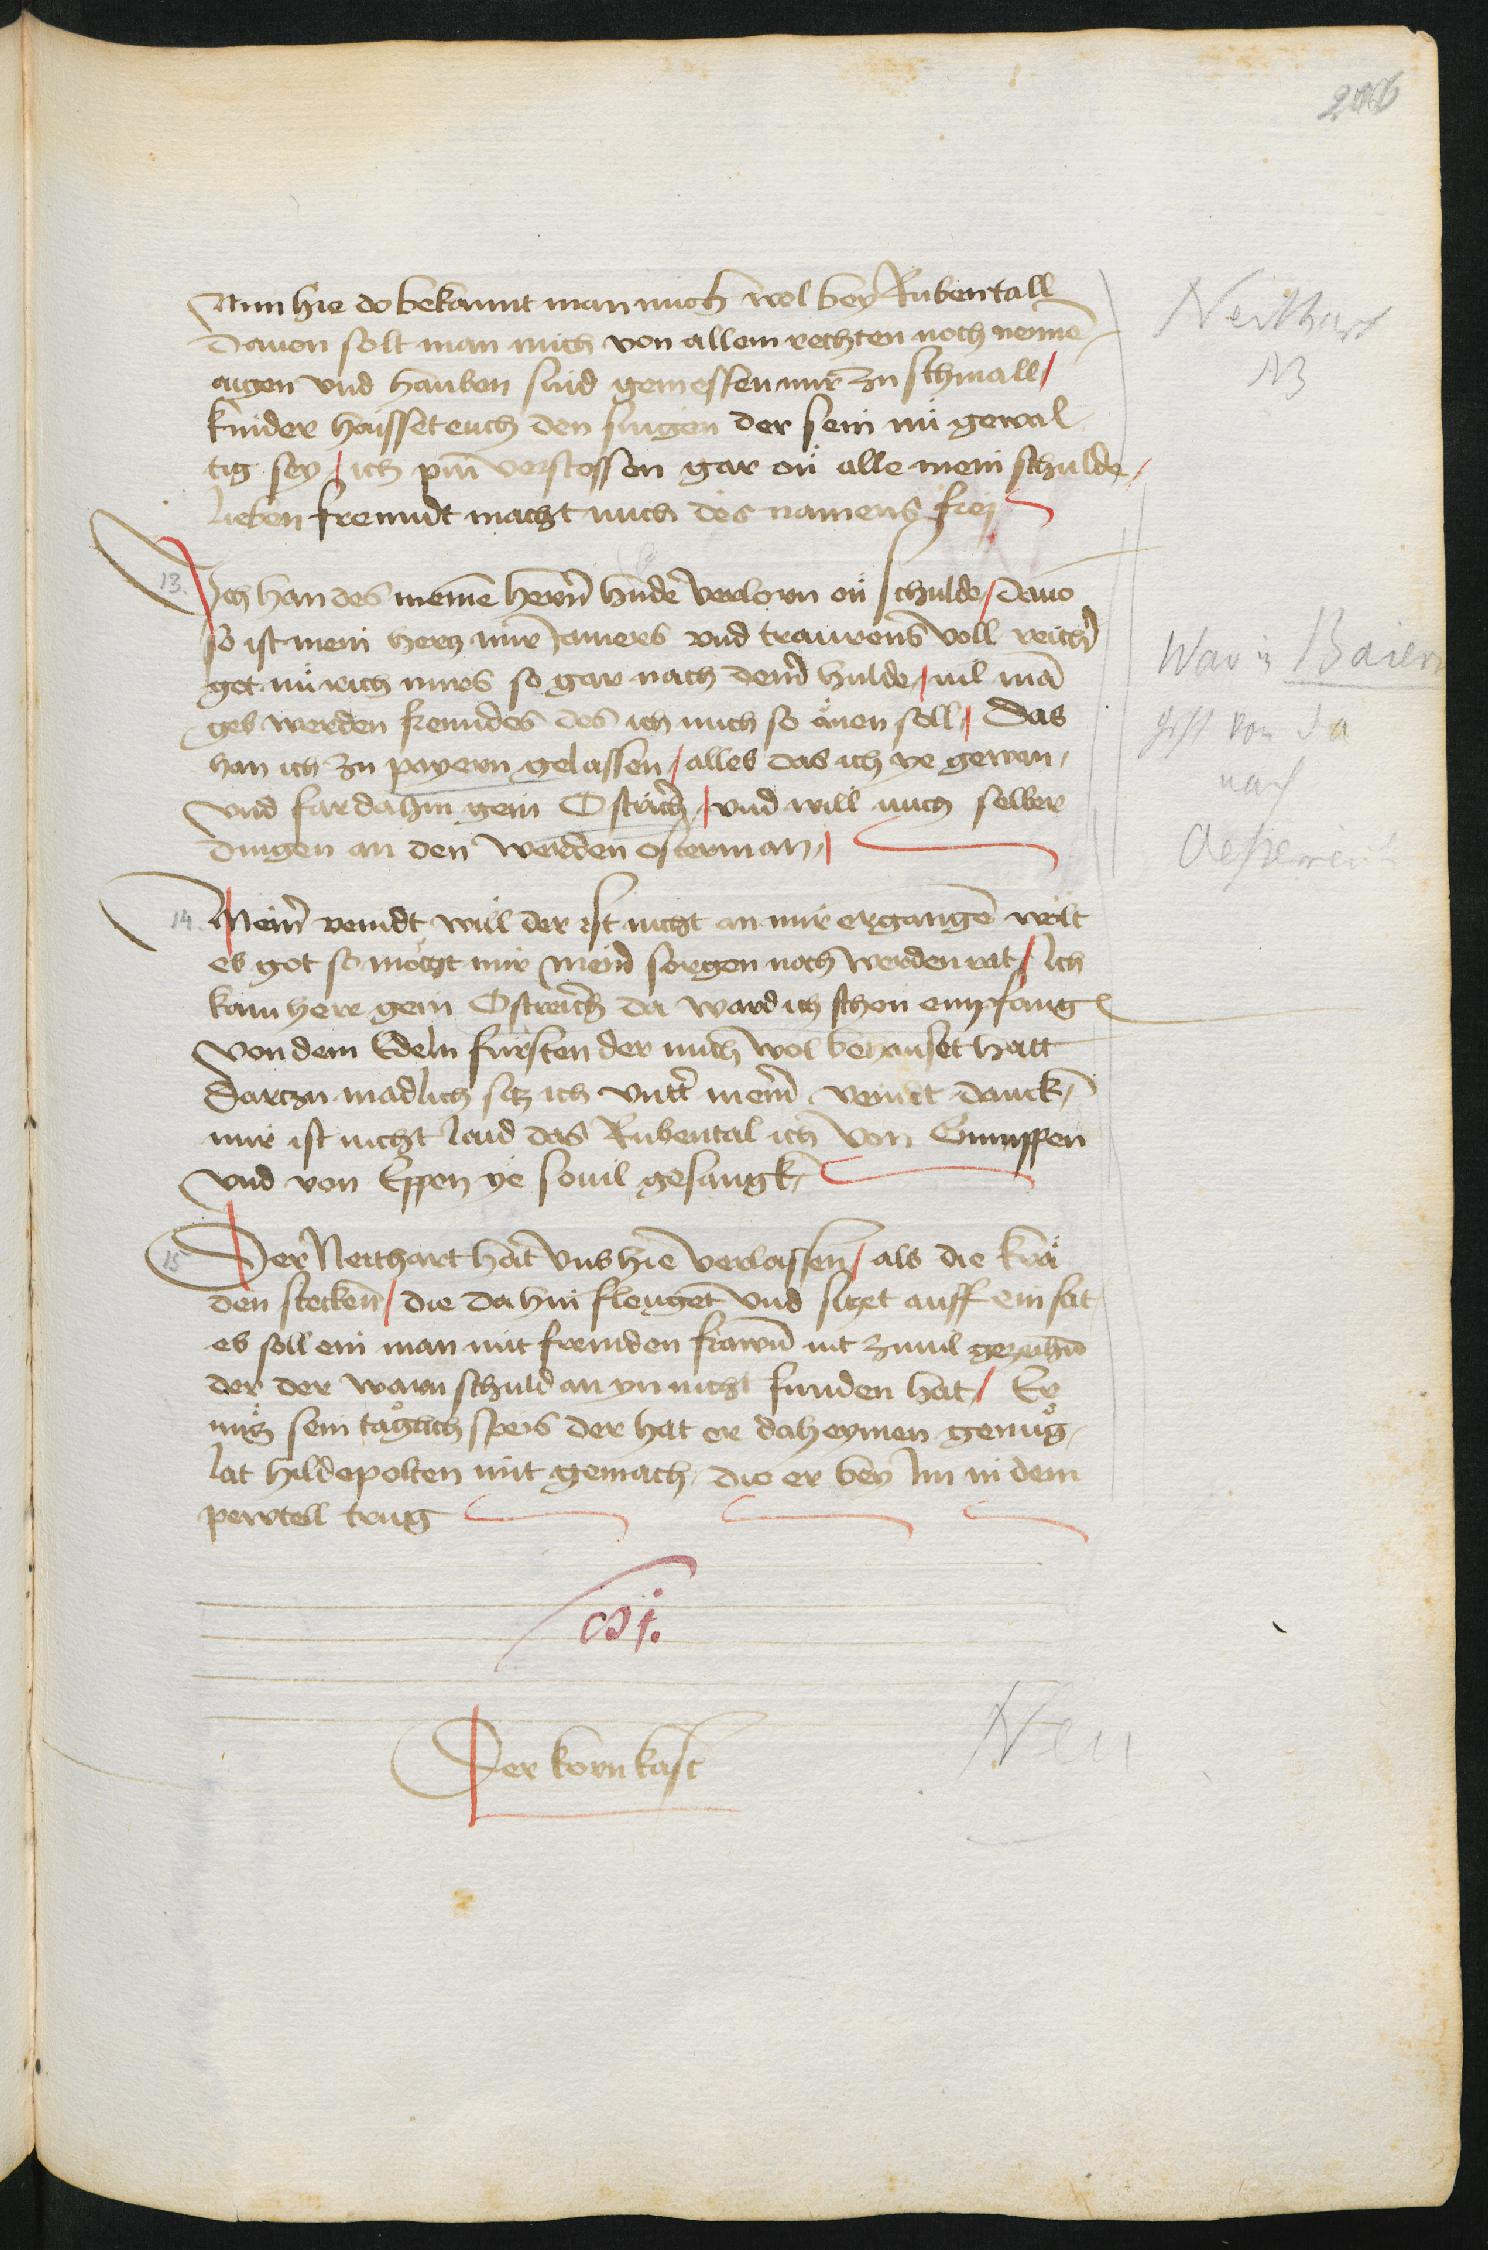 206
Nun hie do bekannt man mich wol bey Rubentall
Dauon solt man mich von allem rechten noch nenne
aigen vnd hauben sind gemessen mir zu schmall /
kinder haisset euch den singen der sein nu gewal
tig sey / ich pin verstossen gar on alle mein schulde /
lieben freundt macht mich des namens frey
Neithart
NB
13. Ich han des meine herrn hulde verlorn on schulde / Dauo
so ist mein hercz mir Jamers vnd traurens voll reicher
got nu rich mirs so gar nach deiner hulde / vil man
ges werden freundes des ich mich so anen soll / Das
han ich zu payern gelassen / alles das ich ye gewan /
vnd far dahin gein Ostrich / vnd will mich selber
dingen an den werden osterman /
War in Baiern
geht von da
nach
Oesterreich
14. Meiner veindt will der ist nicht an mir ergangen wolt
es got so mocht mir meiner sorgen noch werden rat / Ich
kam here gein Ostreich da ward ich schon empfang
von dem Edeln fursten der mich wol behauset hatt
Darczu madlich sicz ich vntter meiner veindt danck /
mir ist nicht laid das Rubental ich von Gumppen
vnd von Eppen ye souil gesangk /
15 Der Neithart hat vns hie verlassen / als die kra
den stecken / die da hin fleuget vnd siczet auff ein sat /
es soll ein man mit fremden frawen nit zuuil gezeihen
der der warn schuld an yn nicht funden hat / Er
nuis sein taglich speis der hat er daheymen genug /
lat hildepolten mit gemach die er bey Im in dem
pewtell trug
Der kornkast
Neu